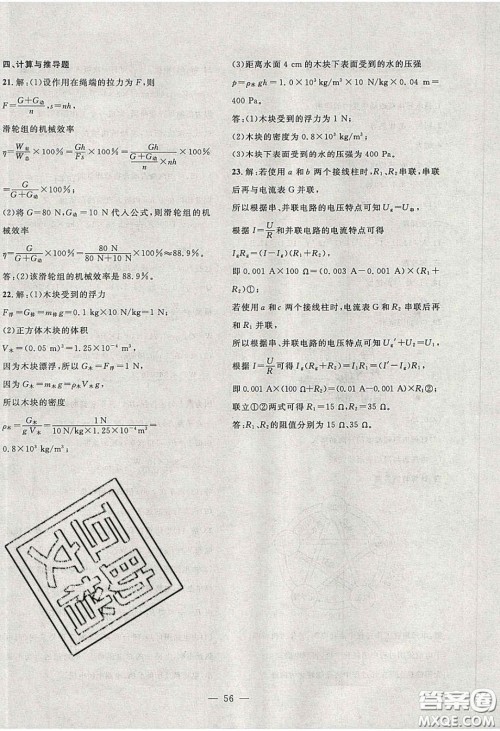 四、计算与推导题
21.解：(1)设作用在绳端的拉力为 F，则
F=(G+G动)/n，s=nh，
滑轮组的机械效率
η=W有/W总×100%=Gh/Fs×100%=Gh/((G+G动)/n×nh)
×100%=G/(G+G动)×100%；
(2)将 G=80 N，G动=10 N 代入公式，则滑轮组的机
械效率
η=G/(G+G动)×100%=80 N/(80 N+10 N)×100%≈88.9%。
答：(2)该滑轮组的机械效率是 88.9%。
22.解：(1)木块受到的浮力
F浮=G物=m木g=0.1 kg×10 N/kg=1 N。
(2)正方体木块的体积
V木=(0.05 m)³=1.25×10⁻⁴ m³，
因木块漂浮，所以 G木=F浮=1 N，
因为 G木=m木g=ρ木V木g，
所以木块的密度
ρ木=G木/(g V木)=1N/(10 N/kg×1.25×10⁻⁴ m³)=
0.8×10³ kg/m³；
(3)距离水面 4 cm 的木块下表面受到的水的压强
p=ρ水gh=1.0×10³ kg/m³×10 N/kg×0.04 m=
400 Pa。
答：(1)木块受到的浮力为 1 N；
(2)木块的密度为 0.8×10³ kg/m³；
(3)木块下表面受到的水的压强为 400 Pa。
23.解：若使用 a 和 b 两个接线柱时，R₁、R₂ 串联，串联
后再与电流表 G 并联，
所以根据串、并联电路的电压特点可知 Ug=U串，
根据 I=U/R 和并联电路的电流特点可知
IgRg=(I-Ig)(R₁+R₂)，
即 0.001 A×100 Ω=(0.003 A-0.001 A)×(R₁+
R₂)①；
若使用 a 和 c 两个接线柱时，电流表 G 和 R₂ 串联后再
与 R₁ 并联，
所以根据串、并联电路的电压特点可知 Ug′+U₂=U₁，
根据 I=U/R 可得：IgRg+IgR₂=I₁R₁=(I′-Ig)R₁，
即 0.001 A×(100 Ω+R₂)=(0.01 A-0.001 A)×R₁②；
联立①②两式可得 R₁=15 Ω，R₂=35 Ω。
答：R₁、R₂ 的阻值分别为 15 Ω、35 Ω。
— 56 —
答案圈
MXQE.COM